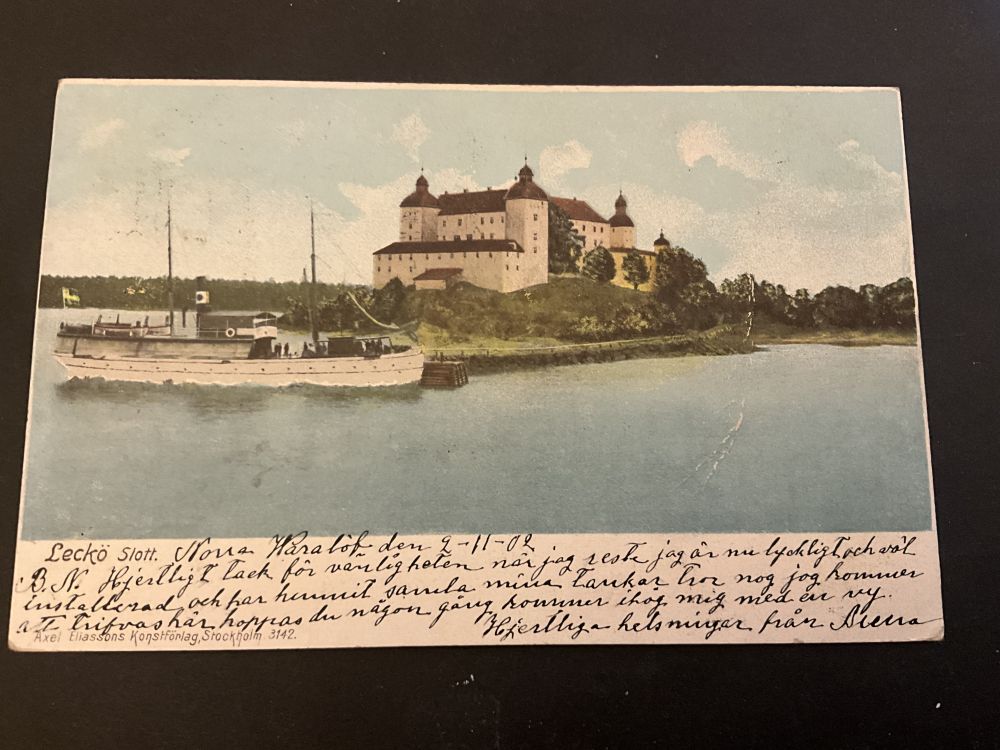 Leckö Slott. Norra Haraböke den 9-11-02
B. N. Hjertligt tack för vänligheten när jag reste jag är nu lyckligt och väl
installerad, och har hunnit samla mina tankar tror nog jag kommer
att trifvas här, hoppas du någon gång kommer ihog mig med en vy.
Hjertliga helsningar från
Axel Eliassons Konstförlag, Stockholm 3142.